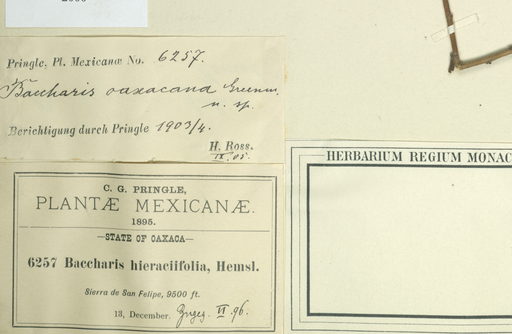 Pringle, Pl. Mexicanæ No. 6257.
Baccharis oaxacana Greenm.
n. sp.
Berichtigung durch Pringle 1903/4.
H. Ross.
IX. 05.
HERBARIUM REGIUM MONAC
C. G. PRINGLE,
PLANTÆ MEXICANÆ.
1895.
—STATE OF OAXACA—
6257 Baccharis hieraciifolia, Hemsl.
Sierra de San Felipe, 9500 ft.
13, December. VI 96.